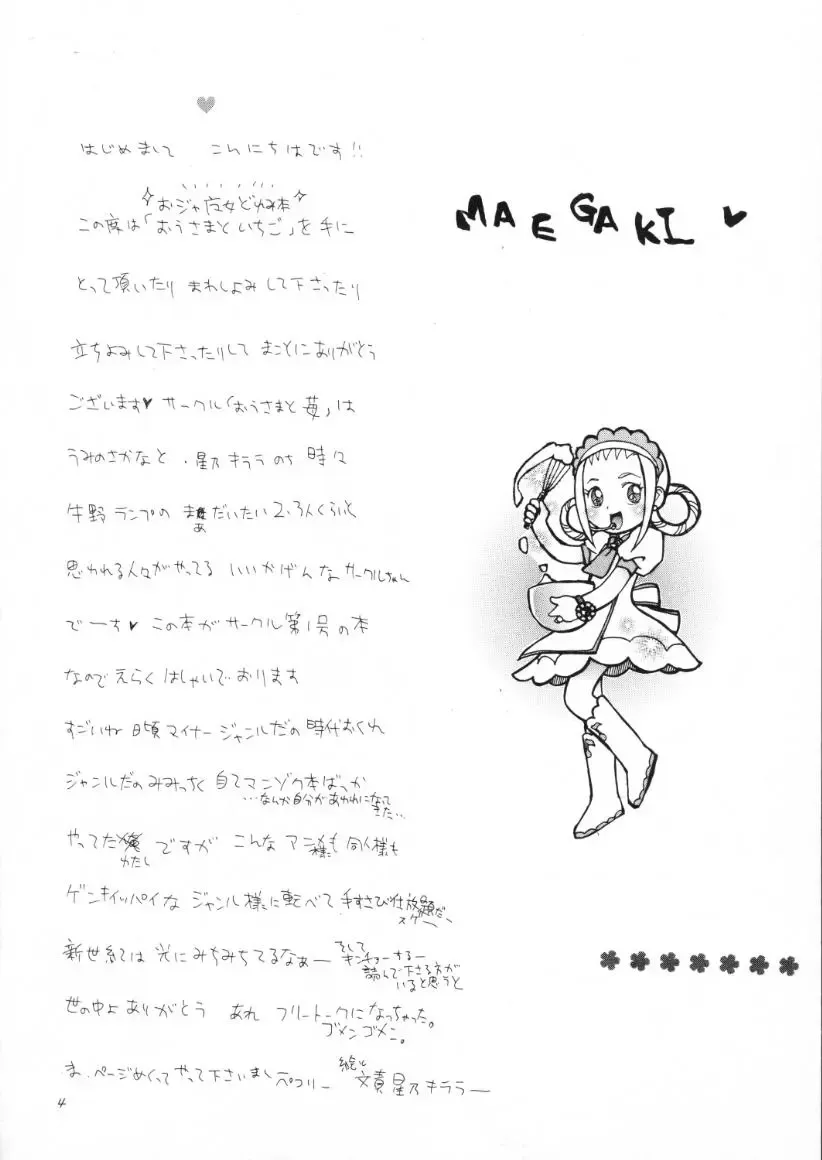 はじめまして こんにちはです!!
おジャ魔女どれみ本
この度は「おうさまといちご」を手に
とって頂いたり まわしよみして下さったり
立ちよみして下さったりして まことにありがとう
ございます♥ サークル「おうさまと苺」は
うみのさかなと、星乃キララのち時々
牛野ランプの まぁだいたい2.3人くらいと
思われる人々がやってる いいかげんなサークルちゃん
でーす♥ この本がサークル第1号の本
なのでえらくはしゃいでおります
すごいね 日頃マイナージャンルだの時代おくれ
ジャンルだのみみっちく自マンゾク本ばっか
…なんか自分があわれになって
きた…
やってた わたし ですが こんな アニ様も同人様も
ゲンキイッパイな ジャンル様に転べて手すさび仕放題だー
スゲー
新世紀では光にみちみちてるなぁー
そして
キンチョーするー
読んで下さる方が
いると思うと
世の中よありがとう あれ フリートークになっちゃった。
ゴメンゴメン。
ま、ページめくってやって下さいまし ペコリー
絵と
文責 星乃キララー
MAEGAKI ♥
4